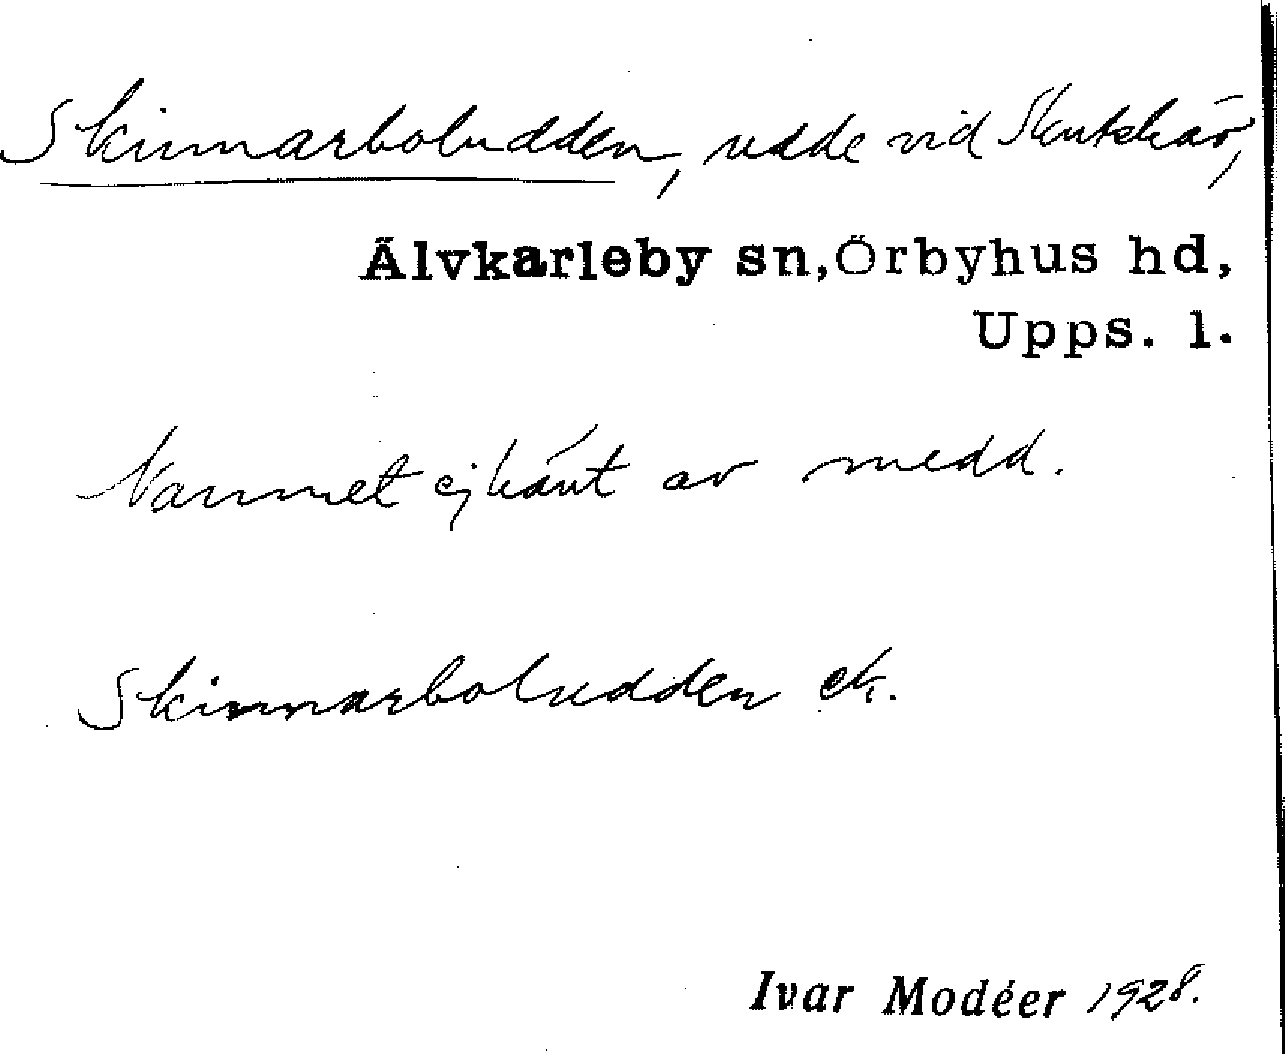 Skinnarboludden, udde vid Skutskär,
Älvkarleby sn, Örbyhus hd,
Upps. l.
Namnet ej känt av medd.
Skinnarboludden ek.
Ivar Modéer 1928.